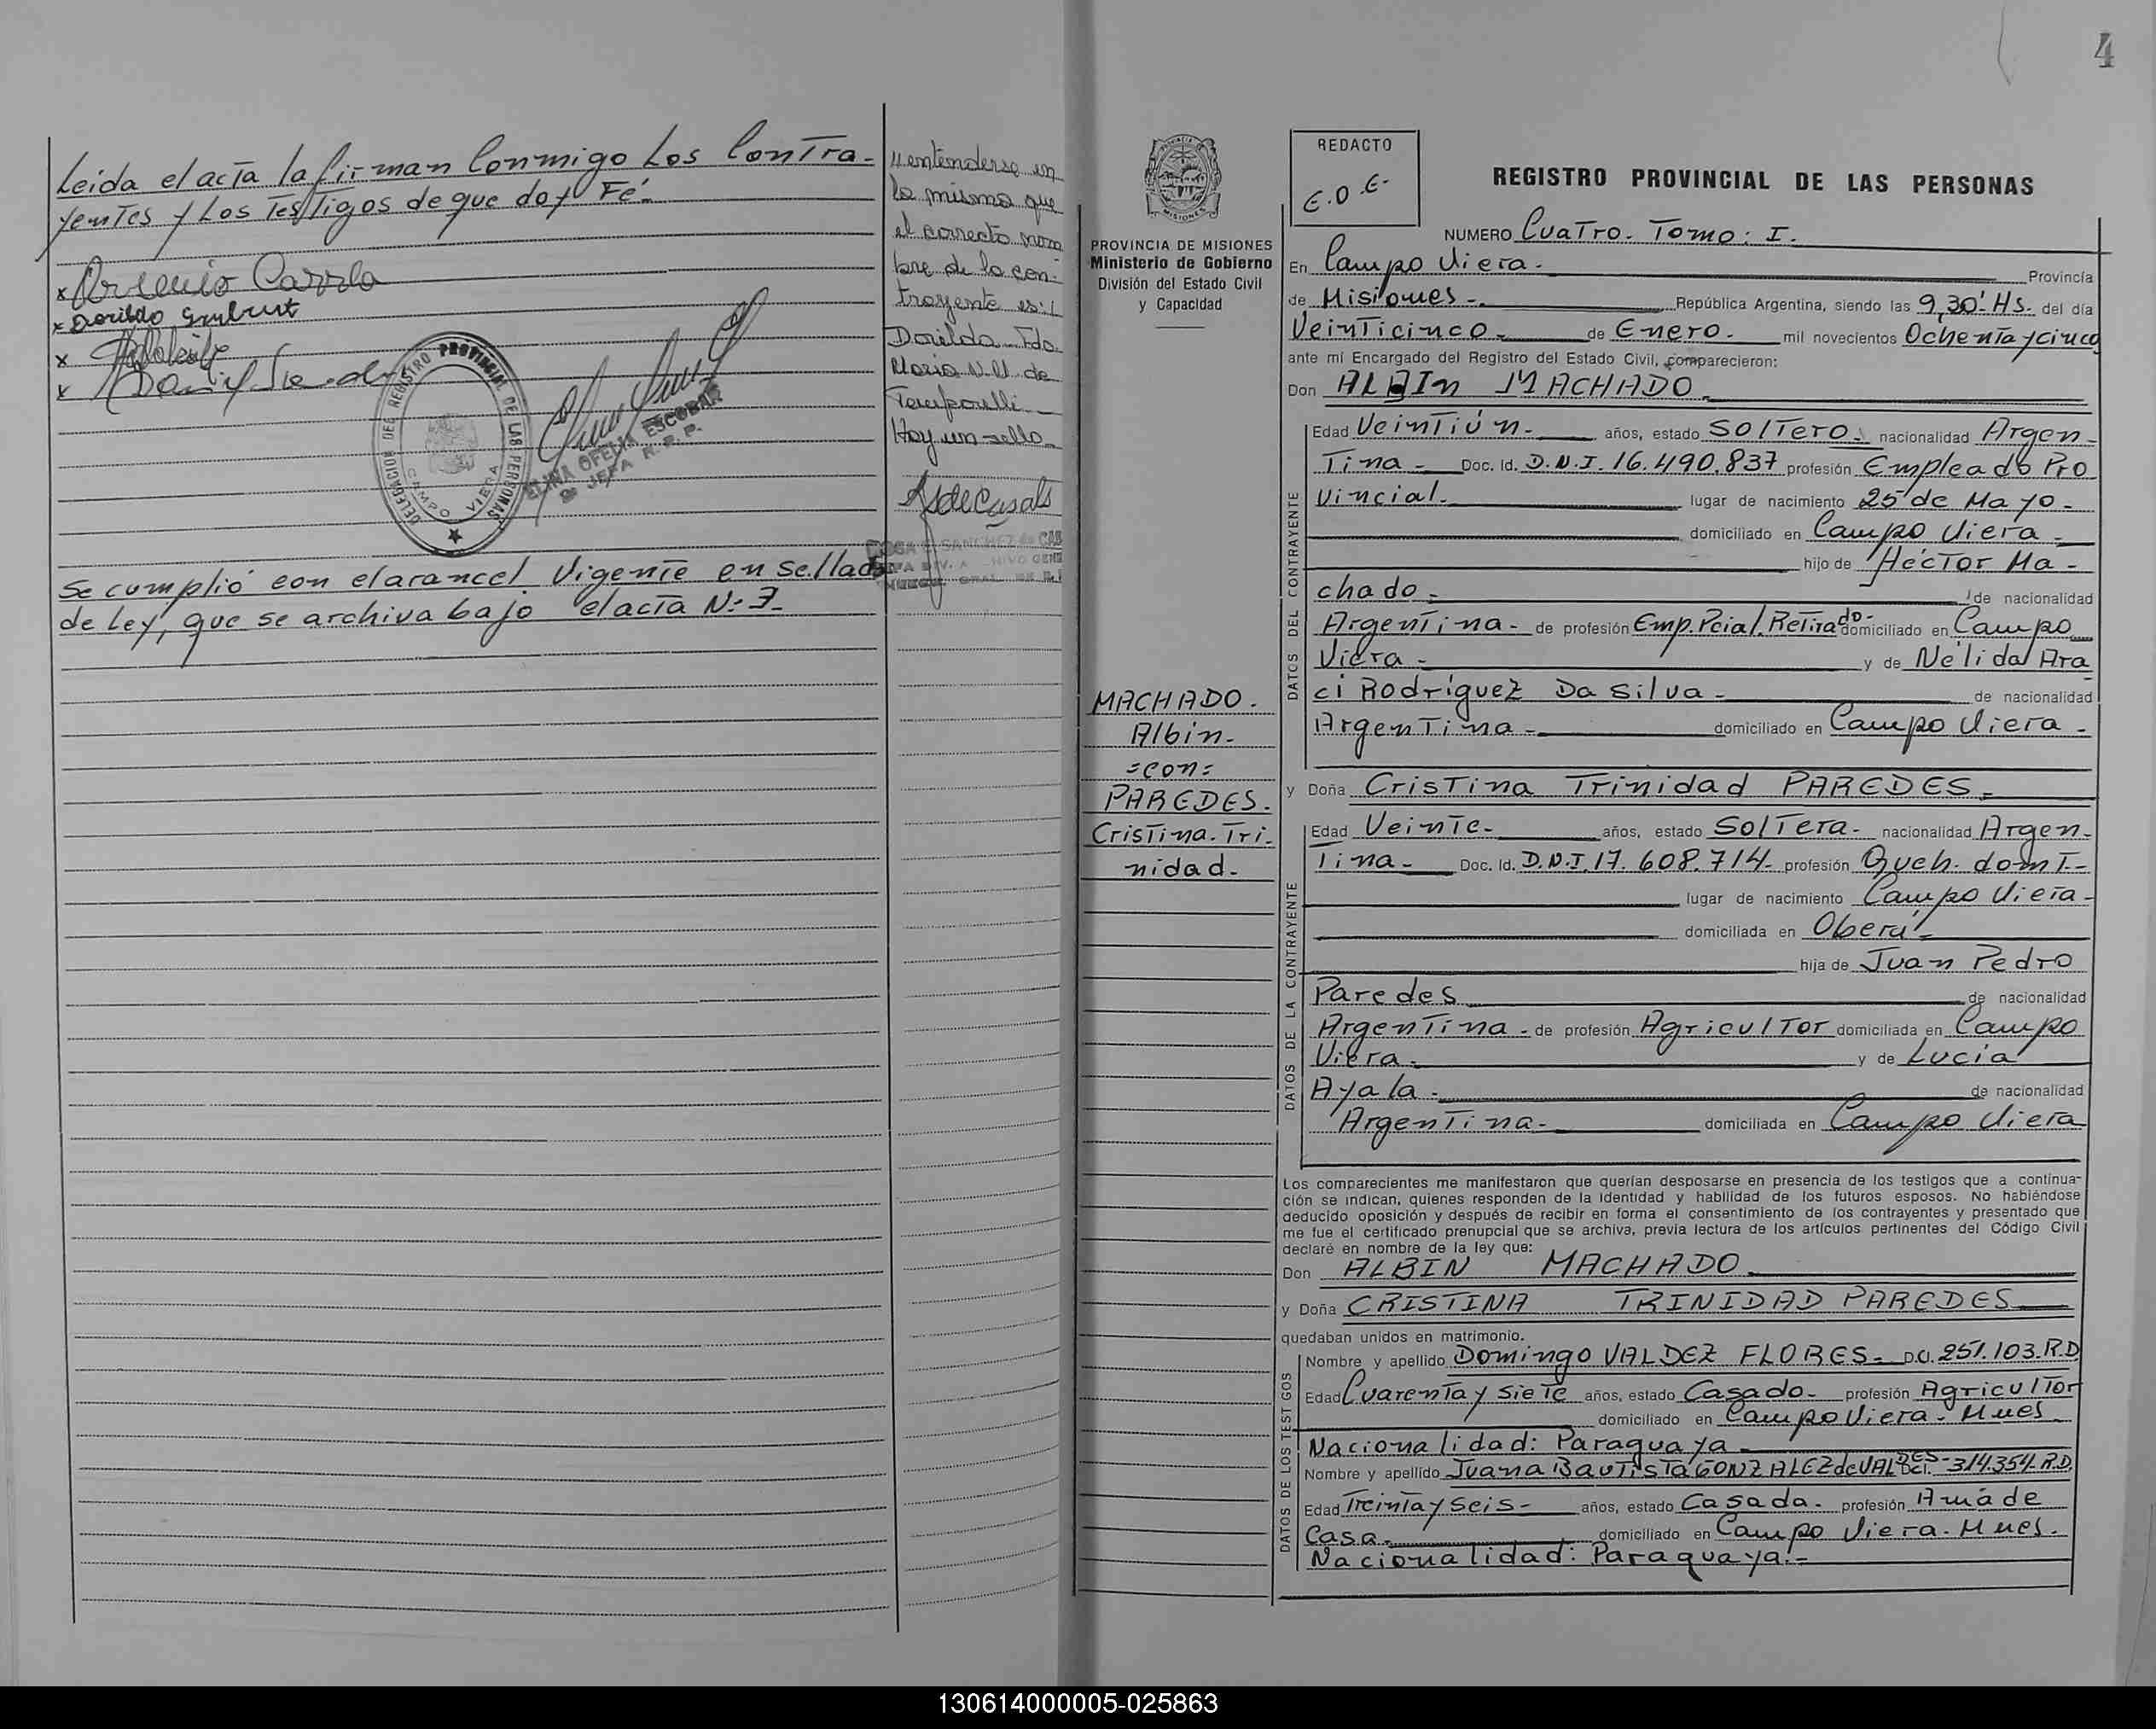 Leida el acta la firman Conmigo Los Contra-
yentes y Los Testigos de que doy Fé.-
x
x Dorildo
x
x
DELEGACION DEL REGISTRO PROVINCIAL DE LAS PERSONAS
CAMPO VIERA
ELINA OFELIA ESCOBAR
JEFA R. P. P.
Se cumplió con el arancel Vigente en sellado
de Ley, que se archiva bajo el acta N:3-
entenderse en
la misma que
el correcto nom
bre de la con-
trayente es:
Dorilda Fdo.
Maria N.U. de
Temporelli.-
Hay un sello.-
ROSA SANCHEZ de CAS
4
PROVINCIA DE MISIONES
Ministerio de Gobierno
División del Estado Civil
y Capacidad
MACHADO.
Albin-
=con=
PAREDES.
Cristina. Tri-
nidad.
REDACTO
E.O.E.
REGISTRO PROVINCIAL DE LAS PERSONAS
NUMERO Cuatro. Tomo: I.
En Campo Viera. Provincia
de Misiones República Argentina, siendo las 9,30' HS. del día
Veinticinco de Enero. mil novecientos Ochenta y cinco
ante mí Encargado del Registro del Estado Civil, comparecieron:
Don ALBIN MACHADO
DATOS DEL CONTRAYENTE
Edad Veintiún años, estado Soltero nacionalidad Argen-
tina Doc. Id. D.N.I. 16.490.837 profesión Empleado Pro
vincial. lugar de nacimiento 25 de Mayo
domiciliado en Campo Viera
hijo de Héctor Ma-
chado de nacionalidad
Argentina de profesión Emp. Pcial. Retirado domiciliado en Campo
Viera y de Nélida Ara
ci Rodríguez Da Silva de nacionalidad
Argentina domiciliado en Campo Viera
y Doña Cristina Trinidad PAREDES
DATOS DE LA CONTRAYENTE
Edad Veinte años, estado Soltera nacionalidad Argen-
tina Doc. Id. D.N.I. 17.608.714 profesión Queh. domt.-
lugar de nacimiento Campo Viera
domiciliada en Oberá
hija de Juan Pedro
Paredes de nacionalidad
Argentina de profesión Agricultor domiciliada en Campo
Viera y de Lucia
Ayala de nacionalidad
Argentina domiciliada en Campo Viera
Los comparecientes me manifestaron que querían desposarse en presencia de los testigos que a continua-
ción se indican, quienes responden de la identidad y habilidad de los futuros esposos. No habiéndose
deducido oposición y después de recibir en forma el consentimiento de los contrayentes y presentado que
me fue el certificado prenupcial que se archiva, previa lectura de los artículos pertinentes del Código Civil
declaré en nombre de la ley que:
Don ALBIN MACHADO
y Doña CRISTINA TRINIDAD PAREDES
quedaban unidos en matrimonio.
DATOS DE LOS TESTIGOS
Nombre y apellido Domingo VALDEZ FLORES D.CI. 251.103.R.D
Edad Cuarenta y Siete años, estado Casado profesión Agricultor
domiciliado en Campo Viera. Mnes
Nacionalidad: Paraguaya
Nombre y apellido Juana Bautista GONZALEZ de VALDES DCI. 314.354.R.D
Edad Treinta y Seis años, estado Casada profesión Ama de
Casa domiciliado en Campo Viera. Mnes.
Nacionalidad: Paraguaya.
130614000005-025863